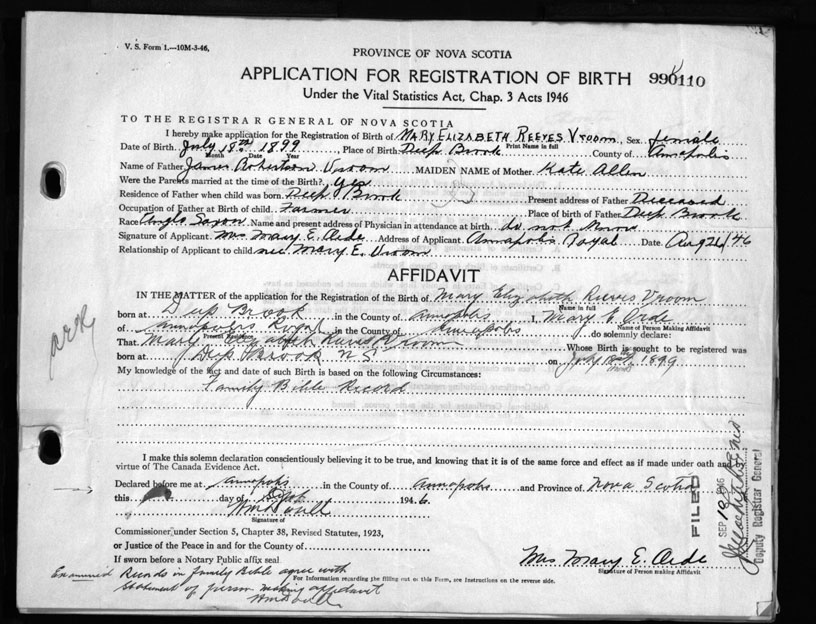 V. S. Form 1.—10M-3-46.
PROVINCE OF NOVA SCOTIA
APPLICATION FOR REGISTRATION OF BIRTH 990110
Under the Vital Statistics Act, Chap. 3 Acts 1946
TO THE REGISTRAR GENERAL OF NOVA SCOTIA
I hereby make application for the Registration of Birth of MARY ELIZABETH REEVES VROOM, Sex. female
Print Name in full
Date of Birth July 18th 1899 Place of Birth Deep Brook County of Annapolis
Month Date Year
Name of Father James Robertson Vroom MAIDEN NAME of Mother Kate Allen
Were the Parents married at the time of the Birth? yes
Residence of Father when child was born Deep Brook Present address of Father Deceased
Occupation of Father at Birth of child Farmer Place of birth of Father Deep Brook
Race Anglo Saxon Name and present address of Physician in attendance at birth do not know
Signature of Applicant Mrs Mary E. Address of Applicant Annapolis Royal Date Aug 26/46
Relationship of Applicant to child nee Mary E. Vroom
AFFIDAVIT
IN THE MATTER of the application for the Registration of the Birth of Mary Elizabeth Reeves Vroom
Name in full
born at Deep Brook in the County of Annapolis I, Mary E.
Name of Person Making Affidavit
of Annapolis Royal in the County of Annapolis do solemnly declare:
Present Residence
That Mary Elizabeth Reeves Vroom Whose Birth is sought to be registered was
born at Deep Brook NS on July 18th 1899
My knowledge of the fact and date of such Birth is based on the following Circumstances:
Family Bible Record
I make this solemn declaration conscientiously believing it to be true, and knowing that it is of the same force and effect as if made under oath and by
virtue of The Canada Evidence Act.
Declared before me at Annapolis in the County of Annapolis and Province of Nova Scotia
this day of Sept 1946.
Signature of
Commissioner under Section 5, Chapter 38, Revised Statutes, 1923,
or Justice of the Peace in and for the County of
If sworn before a Notary Public affix seal
Mrs. Mary E.
Signature of Person making Affidavit
For Information regarding the filling out of this Form, see Instructions on the reverse side.
Examined Records in family Bible agree with
statement of person making affidavit
FILED
SEP 18 1946
Deputy Registrar General